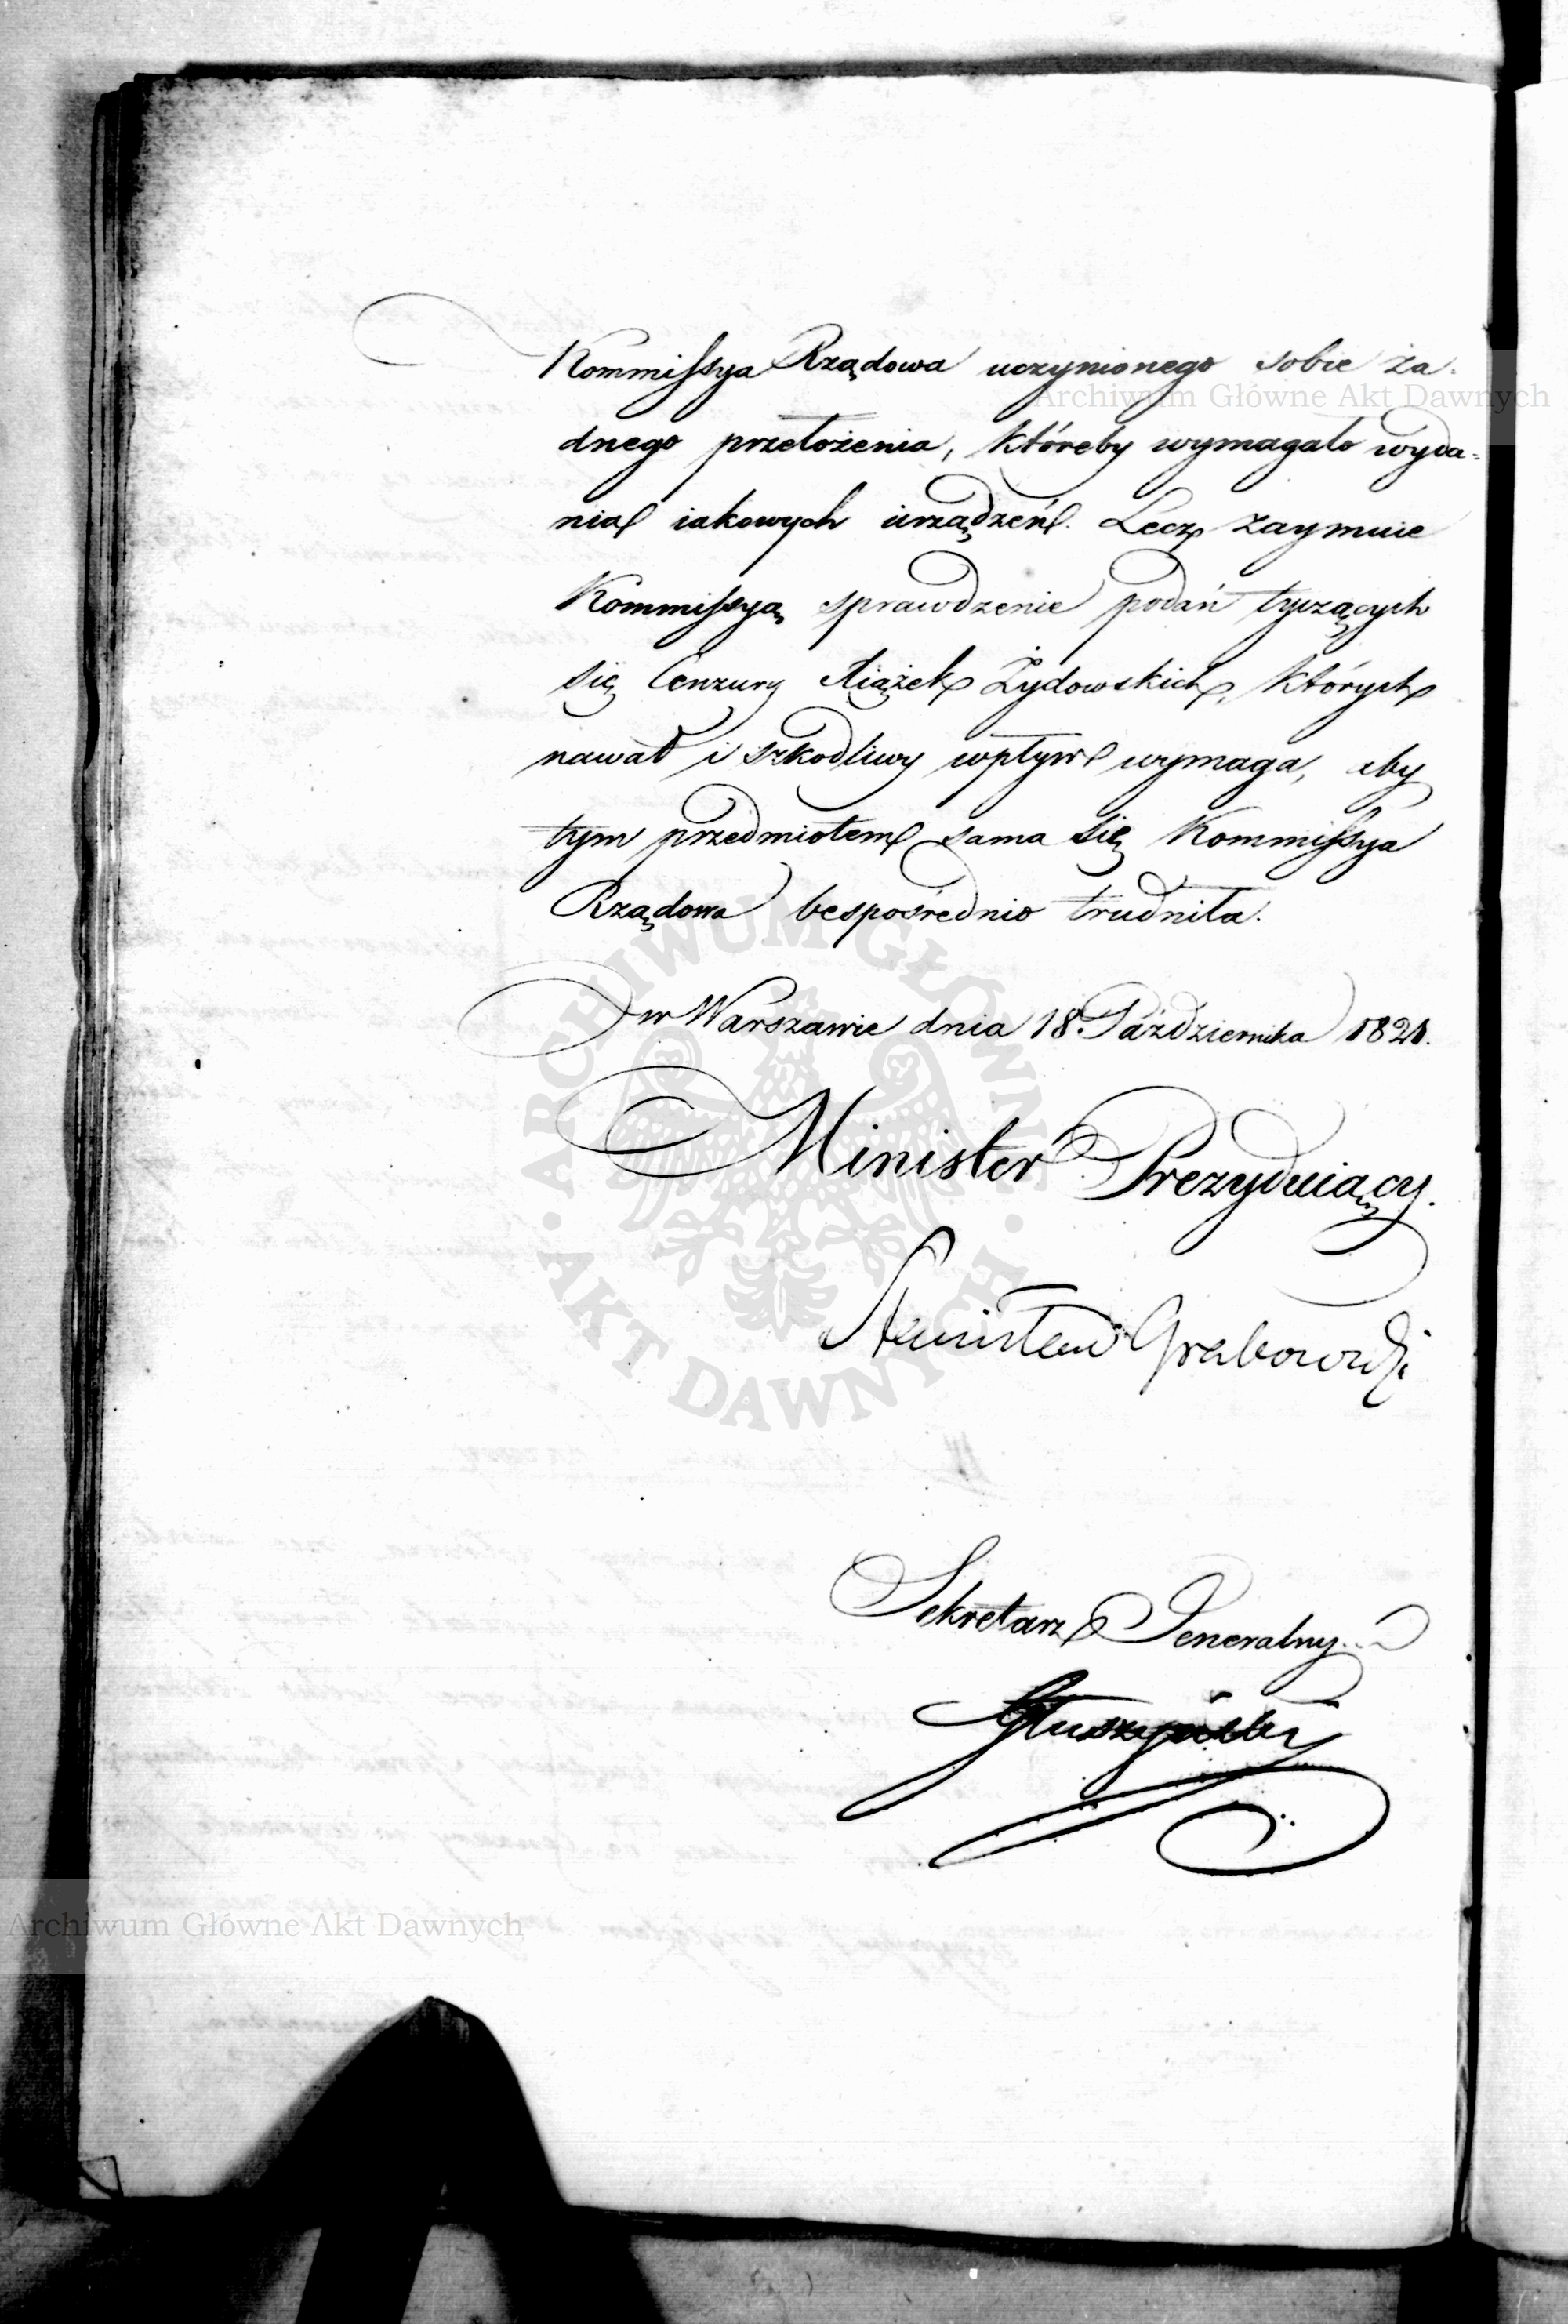 Kommissya Rządowa uczynionego sobie ża-
dnego przełożenia, któreby wymagało wyda-
nia iakowych urządzeń. Lecz zaymuie
Kommissyą sprawdzenie podań tyczących
się Cenzury Xiążek Żydowskich, których
nawał i szkodliwy wpływ wymaga, aby
tym przedmiotem sama się Kommissya
Rządowa bespośrednio trudniła.
w Warszawie dnia 18. Października 1821.
Minister Prezyduiący.
Stanisław Grabowski
Sekretarz Generalny
Archiwum Główne Akt Dawnych
ARCHIWUM GŁÓWNE
AKT DAWNYCH
Archiwum Główne Akt Dawnych